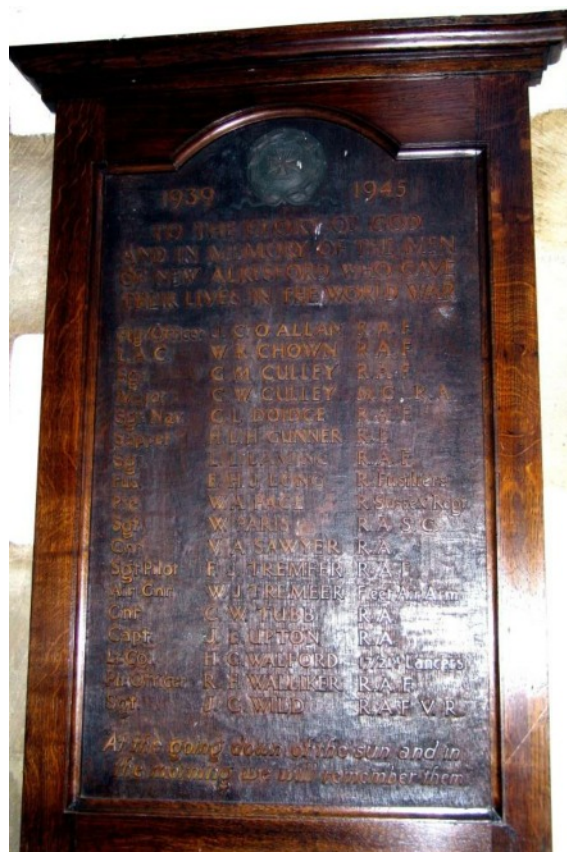 1939 1945
TO THE GLORY OF GOD
AND IN MEMORY OF THE MEN
OF NEW ALRESFORD WHO GAVE
THEIR LIVES IN THE WORLD WAR
J. C. O. ALLAN R. A. F.
L. A. C. W. R. CHOWN R. A. F.
Sgt. C. M. CULLEY R. A. F.
Major C. W. CULLEY M. C. R. A.
Sgt. Nav. C. L. DODGE R. A. F.
Sapper H. L. H. GUNNER R. E.
LEAMING R. A. F.
Fus. E. H. J. LONG R. Fusiliers
Pte. W. A. R. Sussex Regt.
Sgt. W. PARIS R. A. S. C.
Gnr. V. A. SAWYER R. A.
Sgt. Pilot F. J. TREMEER R. A. F.
Air Gnr. W. J. TREMEER Fleet Air Arm
Gnr. C. W. TUBB R. A.
Capt. J. E. UPTON R. A.
H. C. WALFORD Lancers
R. F. WALLIKER R. A. F.
Sgt. J. G. WILD R. A. F. V. R.
At the going down of the sun and in
the morning we will remember them